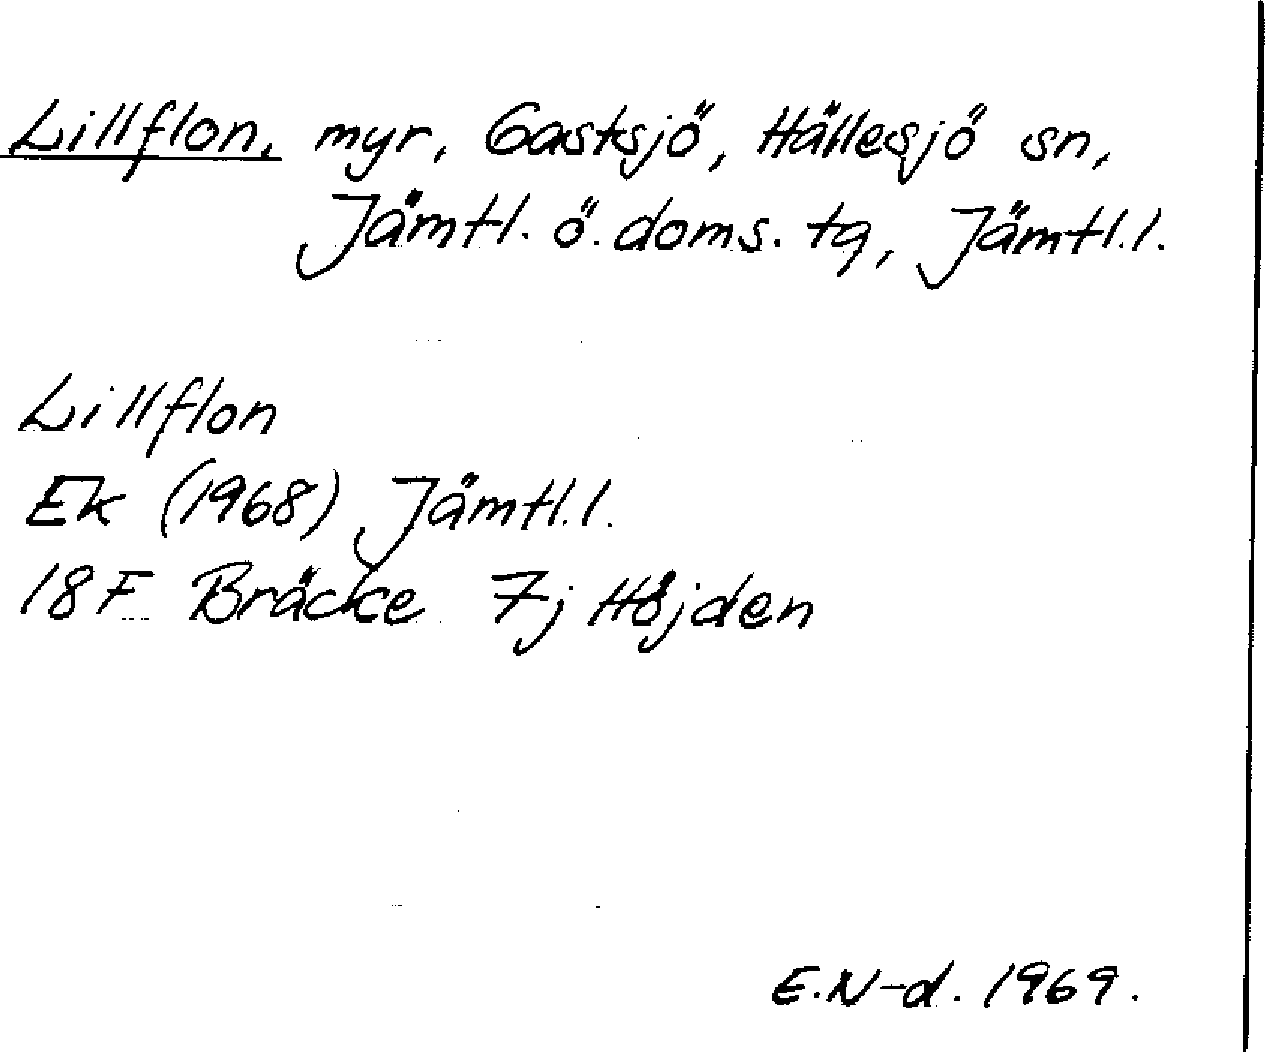 Lillflon, myr, Gastsjö, Hällesjö sn,
Jämtl. ö. doms. tg, Jämtl.l.
Lillflon
Ek (1968) Jämtl.l.
18F Bräcke 7j Höjden
E.N-d. 1969.